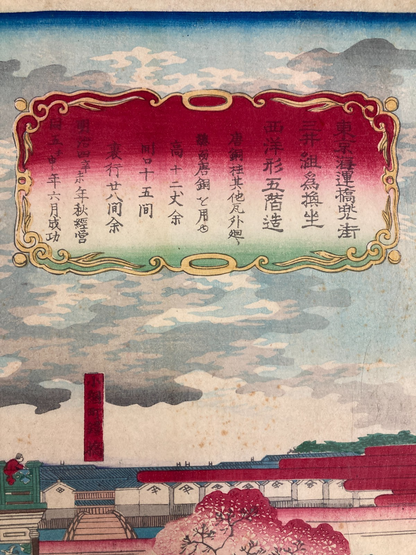 東亰海運橋兜街
三井組為換坐
西洋形五階造
唐銅柱其他瓦外廻
唐銅を用ゆ
高十二丈余
間口十五間
裏行廿八間余
明治四辛未年秋経営
同五申年六月成功
小網町鎧橋